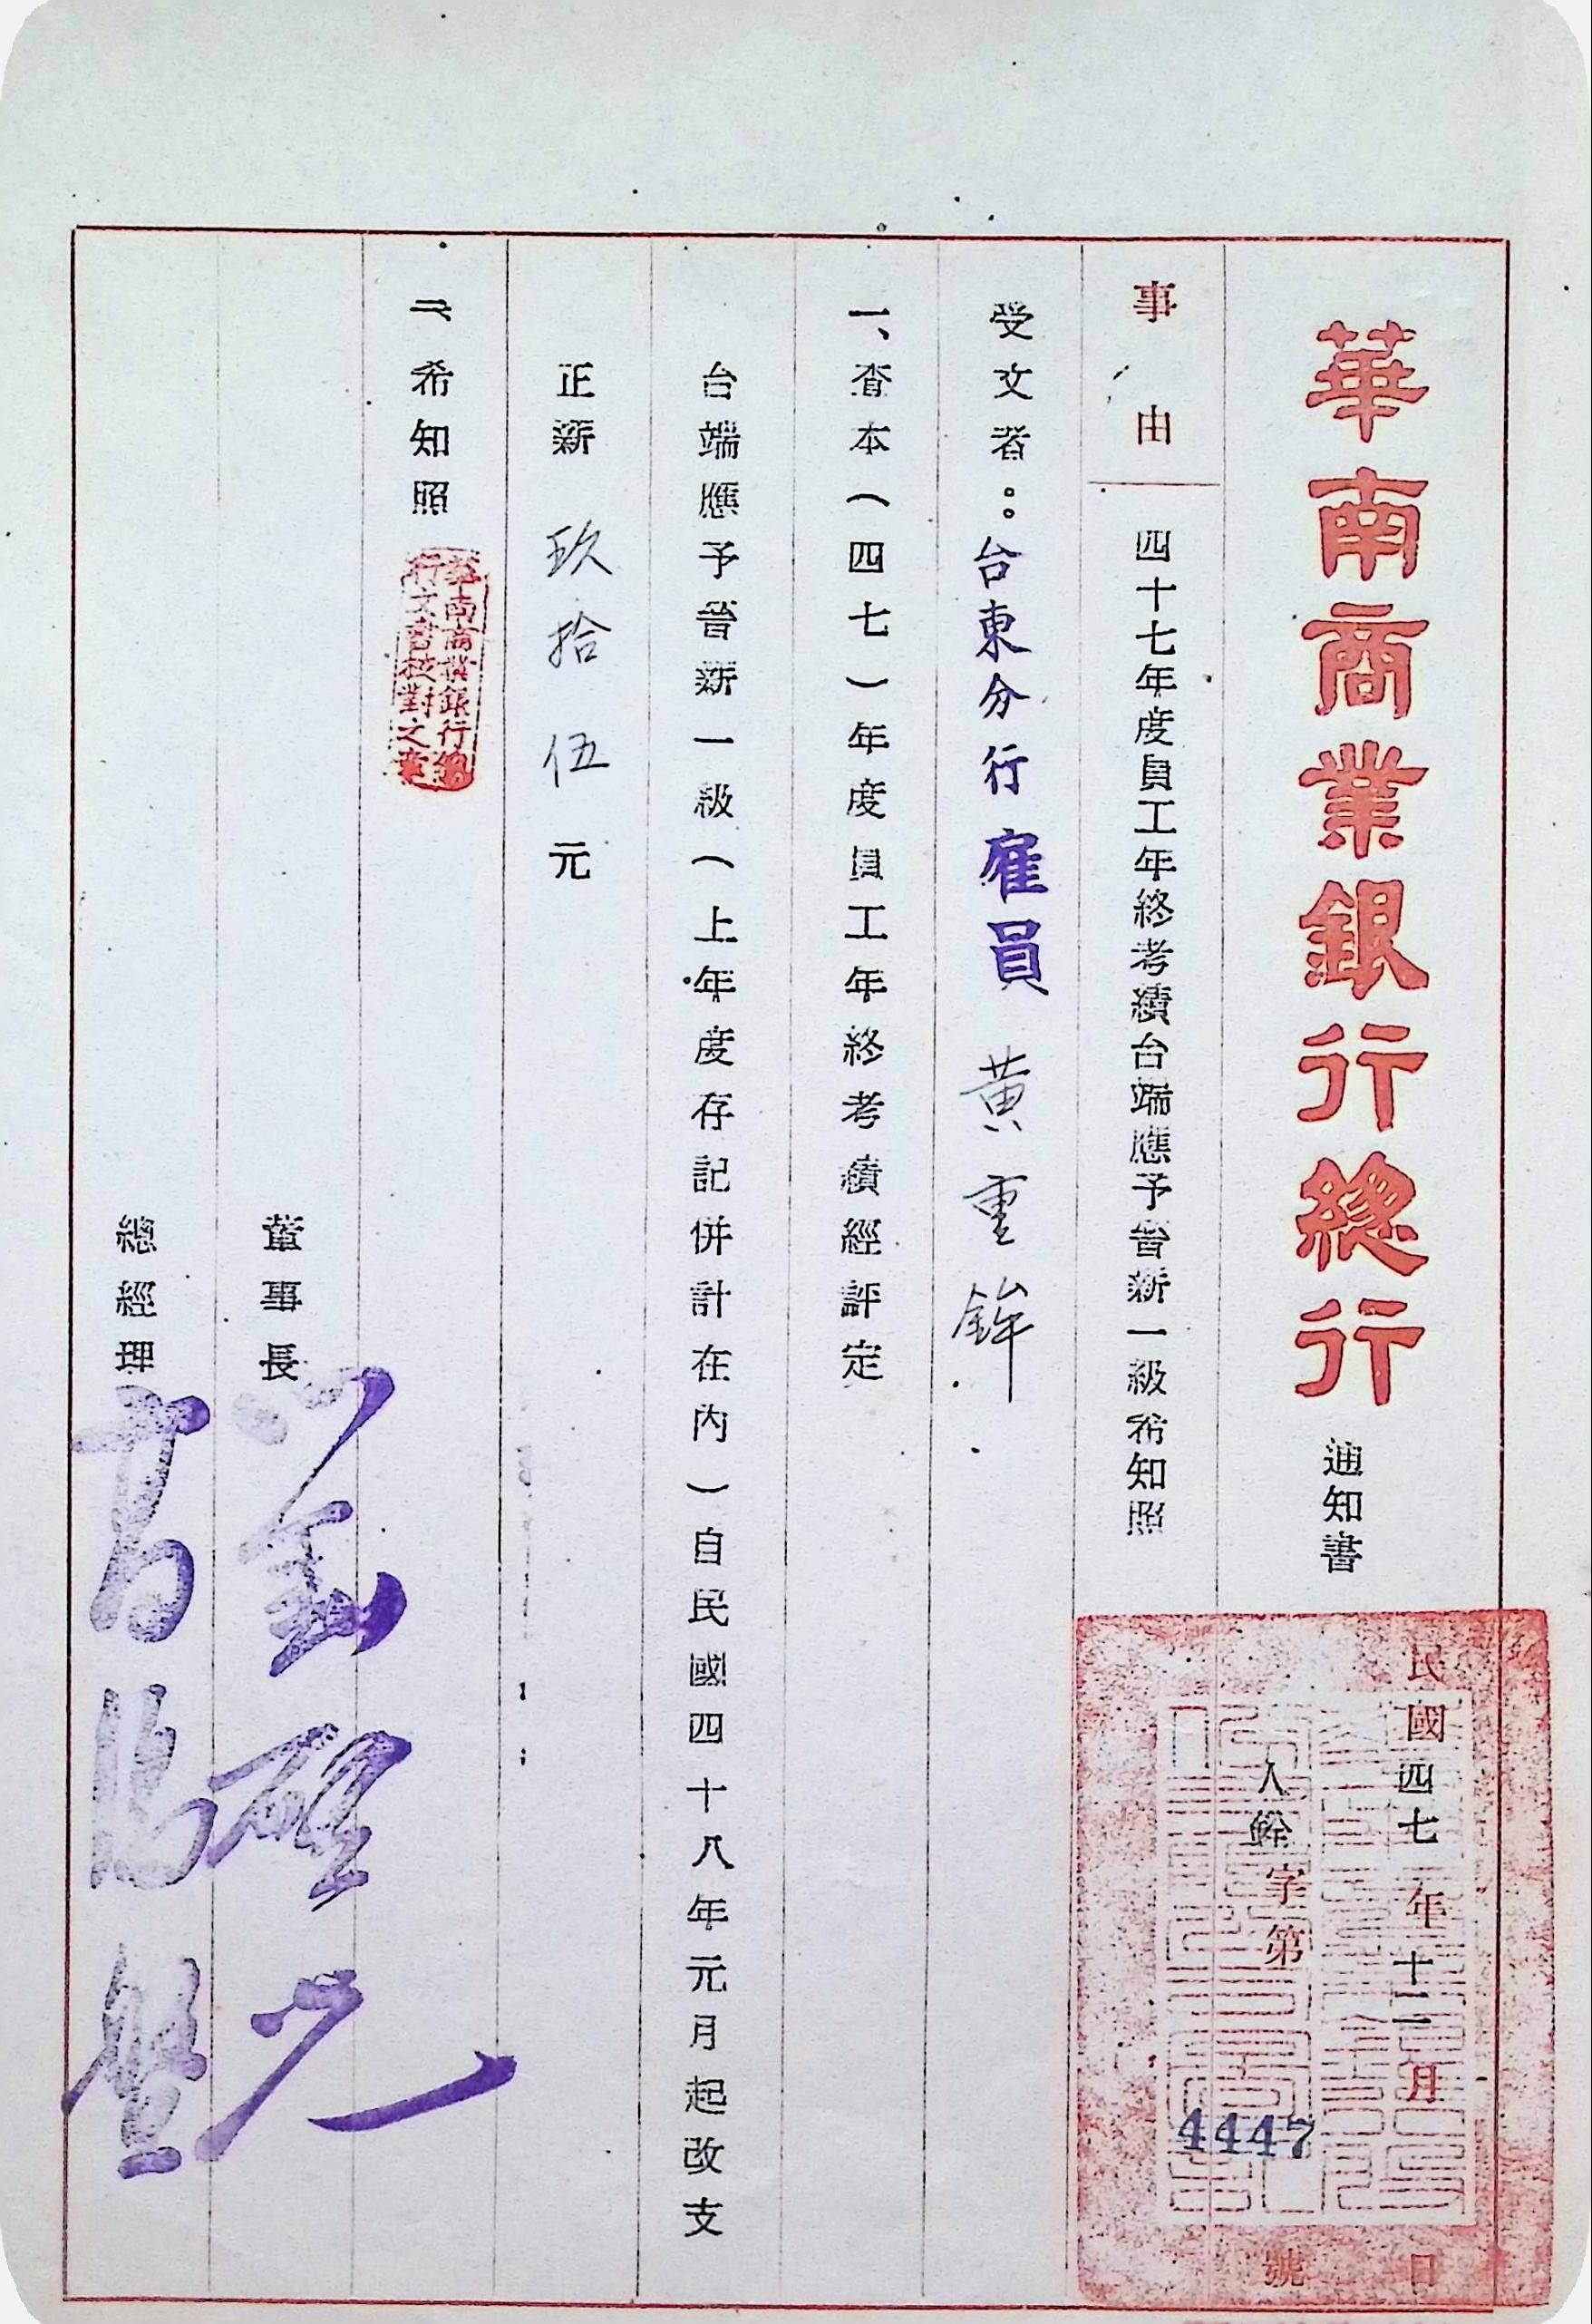 華南商業銀行總行通知書
民國四七年十二月 日
人銓字第4447號
事由
四十七年度員工年終考績台端應予晉薪一級希知照
受文者：台東分行雇員 黃重鉾
一、查本（四七）年度員工年終考績經評定
台端應予晉薪一級（上年度存記併計在內）自民國四十八年元月起改支
正薪 玖拾伍元
二、希知照
華南商業銀行總
行文書校對之章
董事長 劉啓光
總經理 高湯盤